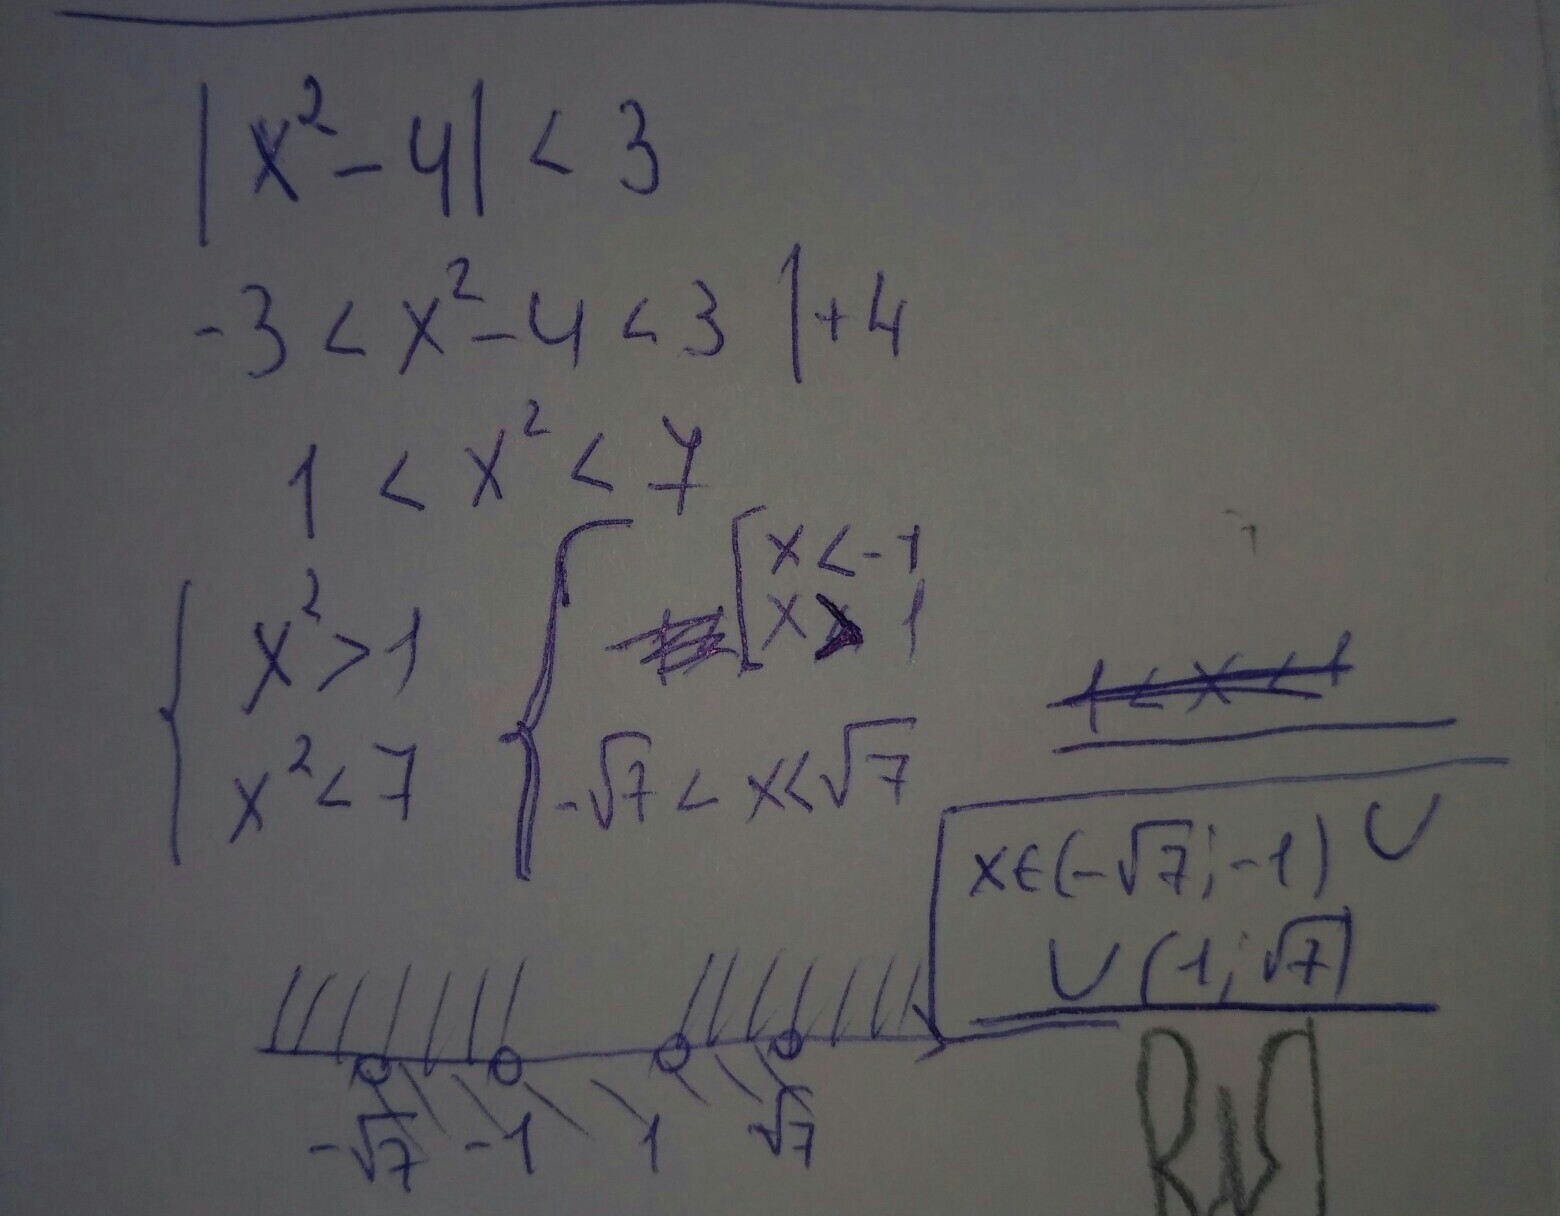 |x²-4| < 3
-3 < x²-4 < 3 |+4
1 < x² < 7
{ x² > 1
x² < 7
{ [ x < -1
x > 1
-√7 < x < √7
1 < x < 1
x∈(-√7; -1) ∪
∪ (1; √7)
-√7 -1 1 √7